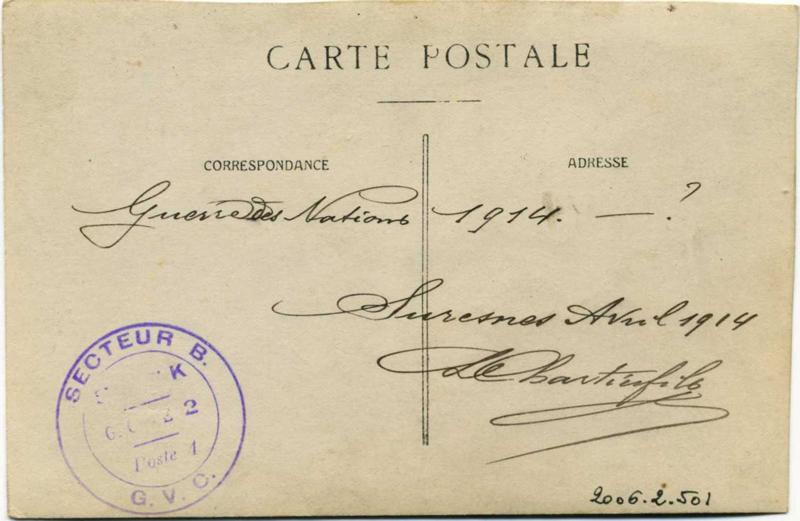 CARTE POSTALE
CORRESPONDANCE
ADRESSE
Guerre des Nations 1914. — ?
Suresnes Avril 1914
SECTEUR B.
K
2
Poste 1
G. V. C.
2006.2.501